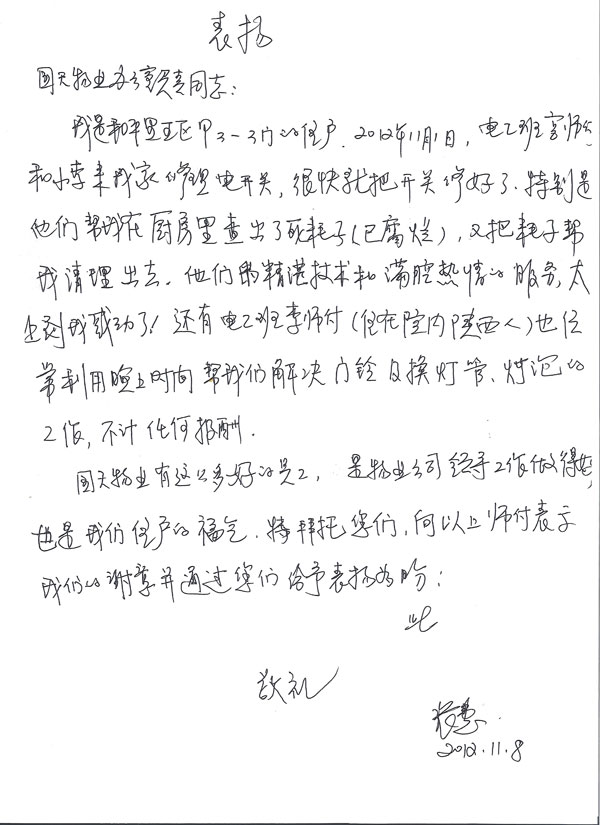 表扬
国天物业办公室负责同志：
我是和平里五区甲3-3门的住户．2012年11月1日，电工班宫师
和小李来我家修理电开关，很快就把开关修好了．特别是
他们帮我在厨房里查出了死耗子(已腐烂)，又把耗子帮
我清理出去．他们的精湛技术和满腔热情的服务，太
让我感动了！还有电工班李师付(住在院内陕西人)也经
常利用晚上时间帮我们解决门铃及换灯管、灯泡的
工作，不计任何报酬．
国天物业有这么多好的员工，是物业公司领导工作做得好，
也是我们住户的福气．特拜托您们，向以上师付表示
我们的谢意并通过您们给予表扬为盼：
此
敬礼
2012.11.8